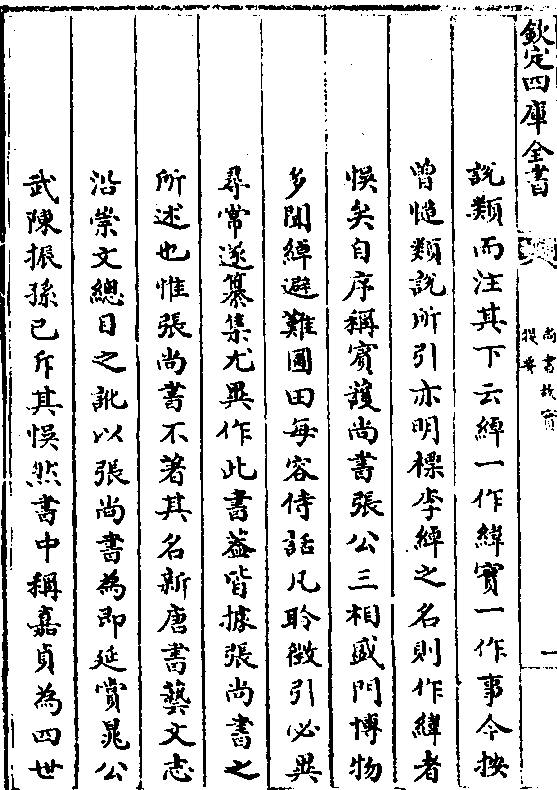 欽定四庫全書
尚書故實
提要
一
說類而注其下云綽一作緯實一作事今按
曾慥類說所引亦明標李綽之名則作緯者
悞矣自序稱賓䕶尚書張公三相盛門博物
多聞綽避難圃田每容侍話凡聆徴引必異
尋常遂纂集尤異作此書葢皆據張尚書之
所述也惟張尚書不著其名新唐書藝文志
沿崇文總目之訛以張尚書為即延賞晁公
武陳振孫已斥其悞然書中稱嘉貞為四世